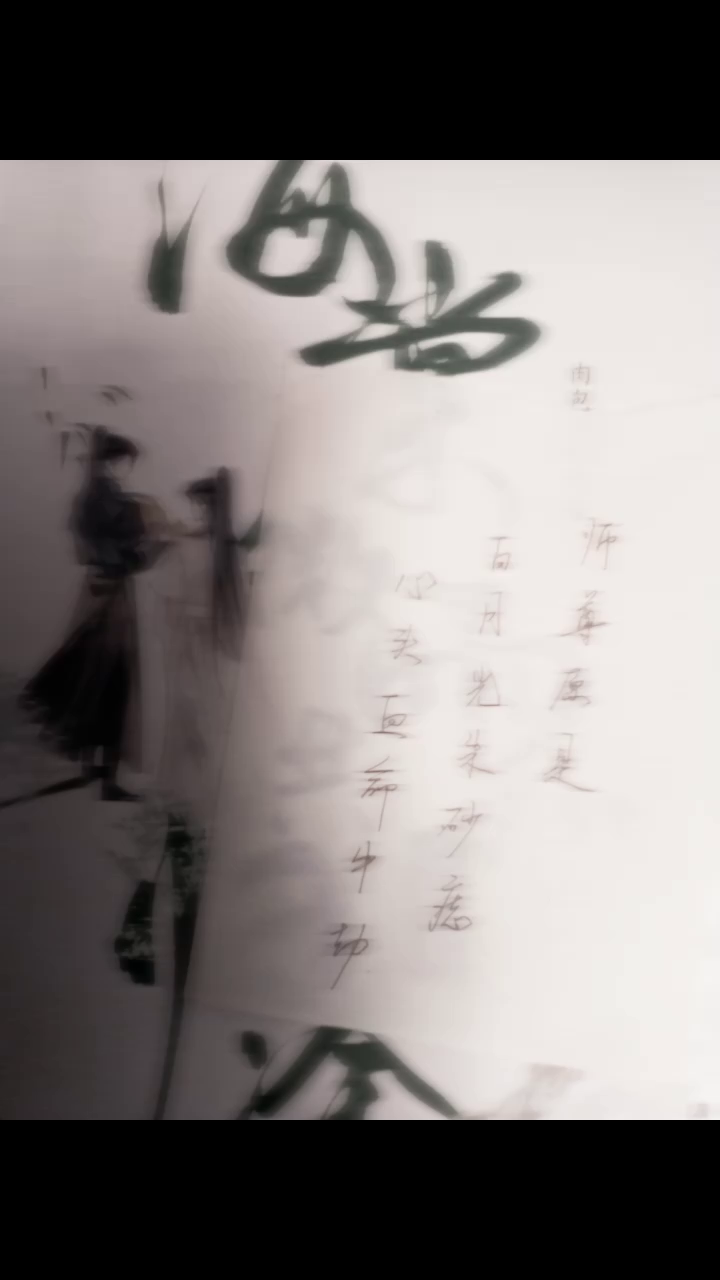 海
肉包
师尊原是
白月光朱砂痣
心头血命中劫